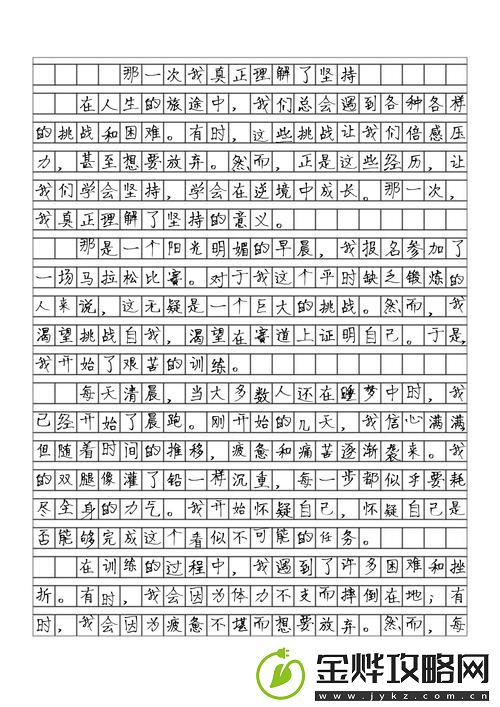 那一次我真正理解了坚持
在人生的旅途中，我们总会遇到各种各样
的挑战和困难。有时，这些挑战让我们倍感压
力，甚至想要放弃。然而，正是这些经历，让
我们学会坚持，学会在逆境中成长。那一次，
我真正理解了坚持的意义。
那是一个阳光明媚的早晨，我报名参加了
一场马拉松比赛。对于我这个平时缺乏锻炼的
人来说，这无疑是一个巨大的挑战。然而，我
渴望挑战自我，渴望在赛道上证明自己。于是，
我开始了艰苦的训练。
每天清晨，当大多数人还在睡梦中时，我
已经开始了晨跑。刚开始的几天，我信心满满，
但随着时间的推移，疲惫和痛苦逐渐袭来。我
的双腿像灌了铅一样沉重，每一步都似乎要耗
尽全身的力气。我开始怀疑自己，怀疑自己是
否能够完成这个看似不可能的任务。
在训练的过程中，我遇到了许多困难和挫
折。有时，我会因为体力不支而摔倒在地；有
时，我会因为疲惫不堪而想要放弃。然而，每
金烨攻略网
www.jykz.com.cn